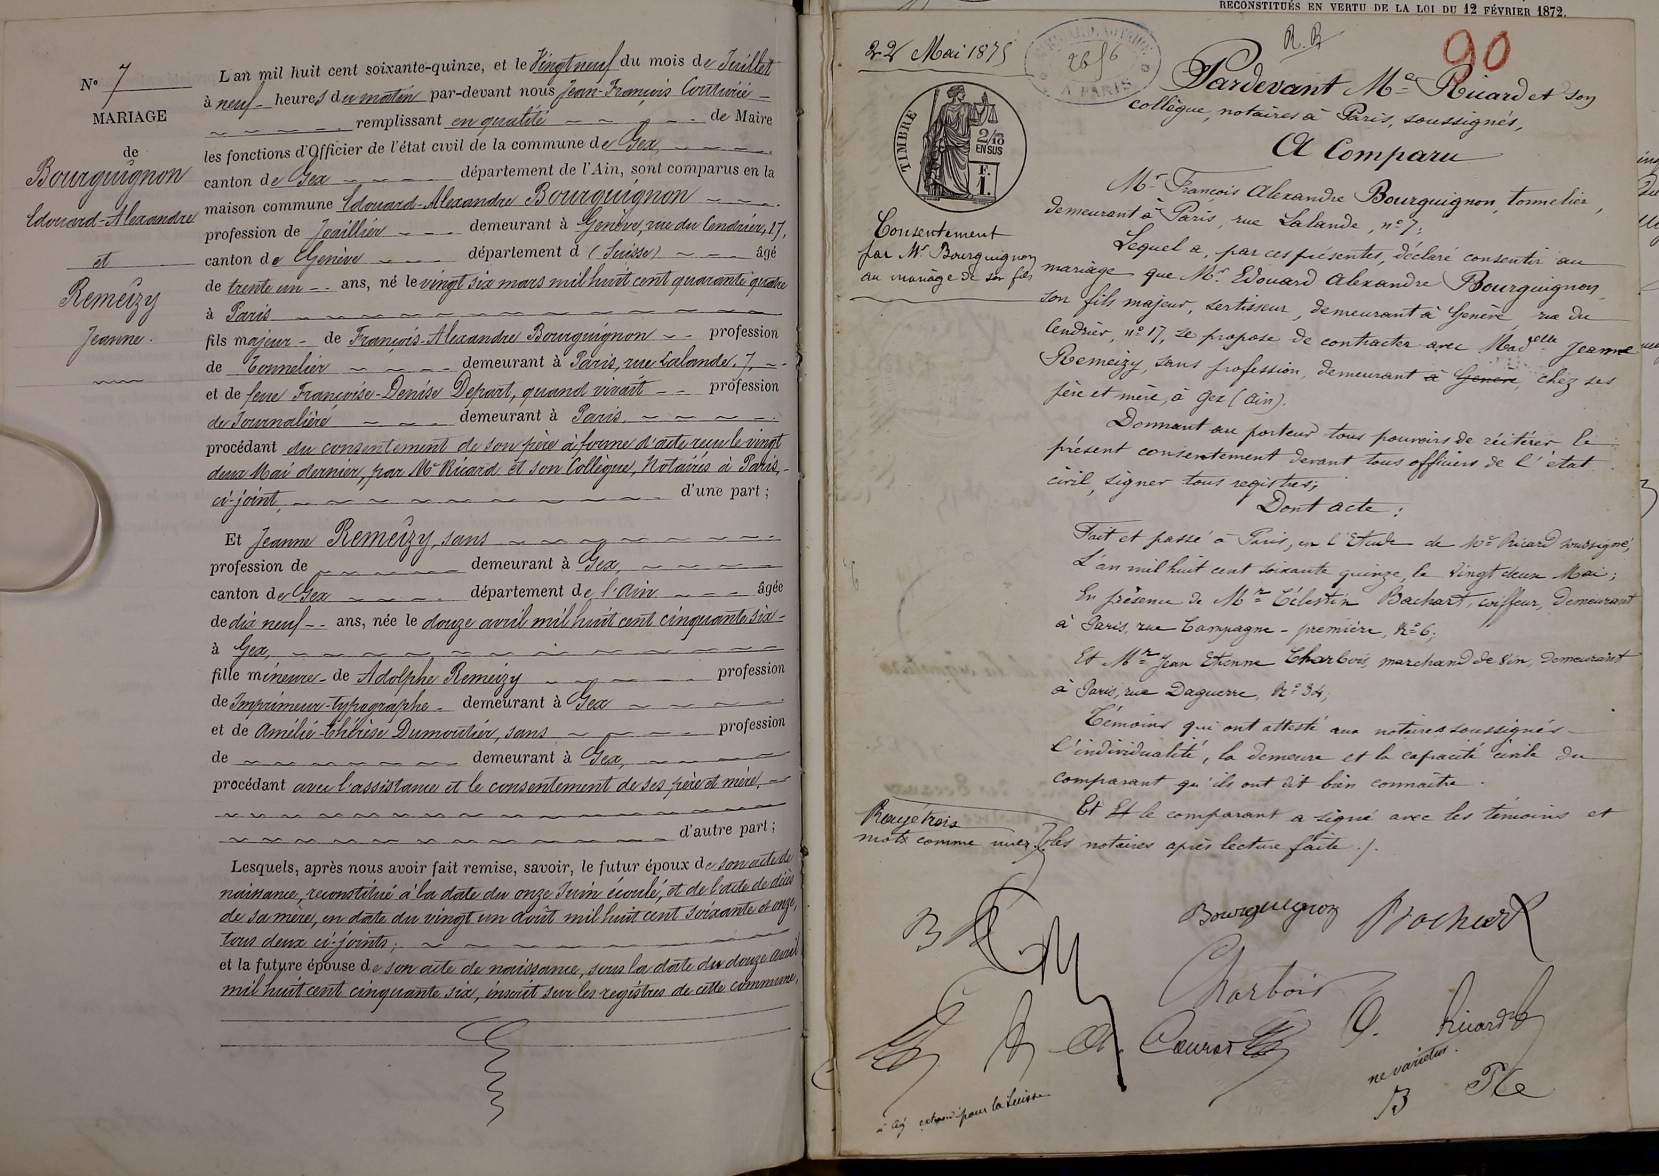 N° 7
MARIAGE
de
Bourguignon
Edouard-Alexandre
et
Remeizy
Jeanne.
L'an mil huit cent soixante-quinze, et le Vingt neuf du mois de Juillet
à neuf heures du matin par-devant nous Jean-François Couturié
remplissant en qualité de Maire
les fonctions d'Officier de l'état civil de la commune de Gex,
canton de Gex département de l'Ain, sont comparus en la
maison commune Edouard-Alexandre Bourguignon
profession de Joaillier demeurant à Genève, rue du Cendrier, 17,
canton de Genève département d (Suisse) âgé
de trente un ans, né le vingt six mars mil huit cent quarante quatre
à Paris
fils majeur de François-Alexandre Bourguignon profession
de Tonnelier demeurant à Paris, rue Lalande, 7,
et de feue Françoise-Denise Depart, quand vivait profession
de Journalière demeurant à Paris
procédant du consentement de son père à forme d'acte reçu le vingt
deux Mai dernier, par Me Ricard et son Collègue, Notaires à Paris,
ci-joint, d'une part ;
Et Jeanne Remeizy, sans
profession de demeurant à Gex,
canton de Gex département de l'Ain âgée
de dix neuf ans, née le douze avril mil huit cent cinquante six
à Gex,
fille mineure de Adolphe Remeizy profession
de Imprimeur-typographe demeurant à Gex
et de Amélie-Thérèse Dumoutier, sans profession
de demeurant à Gex,
procédant avec l'assistance et le consentement de ses père et mère,
d'autre part ;
Lesquels, après nous avoir fait remise, savoir, le futur époux de son acte de
naissance, reconstitué à la date du onze Juin écoulé, et de l'acte de décès
de sa mère, en date du vingt un août mil huit cent soixante et onze,
tous deux ci-joints ;
et la future épouse de son acte de naissance, sous la date du douze avril
mil huit cent cinquante six, inscrit sur les registres de cette commune,
RECONSTITUÉS EN VERTU DE LA LOI DU 12 FÉVRIER 1872.
22 Mai 1875
R. B
90
A PARIS
TIMBRE
2/10
EN SUS
F.
1.
Consentement
par Mr Bourguignon
au mariage de son fils
Pardevant Me Ricard et son
collègue, notaires à Paris, soussignés,
A Comparu
Mr François Alexandre Bourguignon, tonnelier,
demeurant à Paris, rue Lalande, n° 7;
Lequel a, par ces présentes, déclaré consentir au
mariage que Mr Edouard Alexandre Bourguignon,
son fils majeur, sertisseur, demeurant à Genève, rue du
Cendrier, n° 17, se propose de contracter avec Mad elle Jeanne
Remeizy, sans profession, demeurant à Genève, chez ses
père et mère, à Gex (Ain).
Donnant au porteur tous pouvoirs de réitérer le
présent consentement devant tous officiers de l'état
civil, signer tous registres;
Dont acte :
Fait et passé à Paris, en l'Etude de Me Ricard soussigné,
L'an mil huit cent soixante quinze, le vingt deux Mai ;
En présence de Mr Célestin Bachart, coiffeur, demeurant
à Paris, rue Campagne-première, N° 6;
Et Mr Jean Etienne Charbois, marchand de vin, demeurant
à Paris, rue Daguerre, N° 34,
Témoins qui ont attesté aux notaires soussignés
l'individualité, la demeure et la capacité civile du
comparant qu'ils ont dit bien connaître.
Et le comparant a signé avec les témoins et
les notaires après lecture faite ./.
Rayé trois
mots comme nuls
Bourguignon
Bachart
Charbois
Ricard
ne varietur.